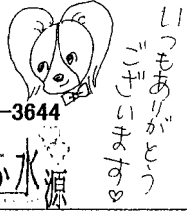 いつもありがとう
ございます♡
-3644
水源